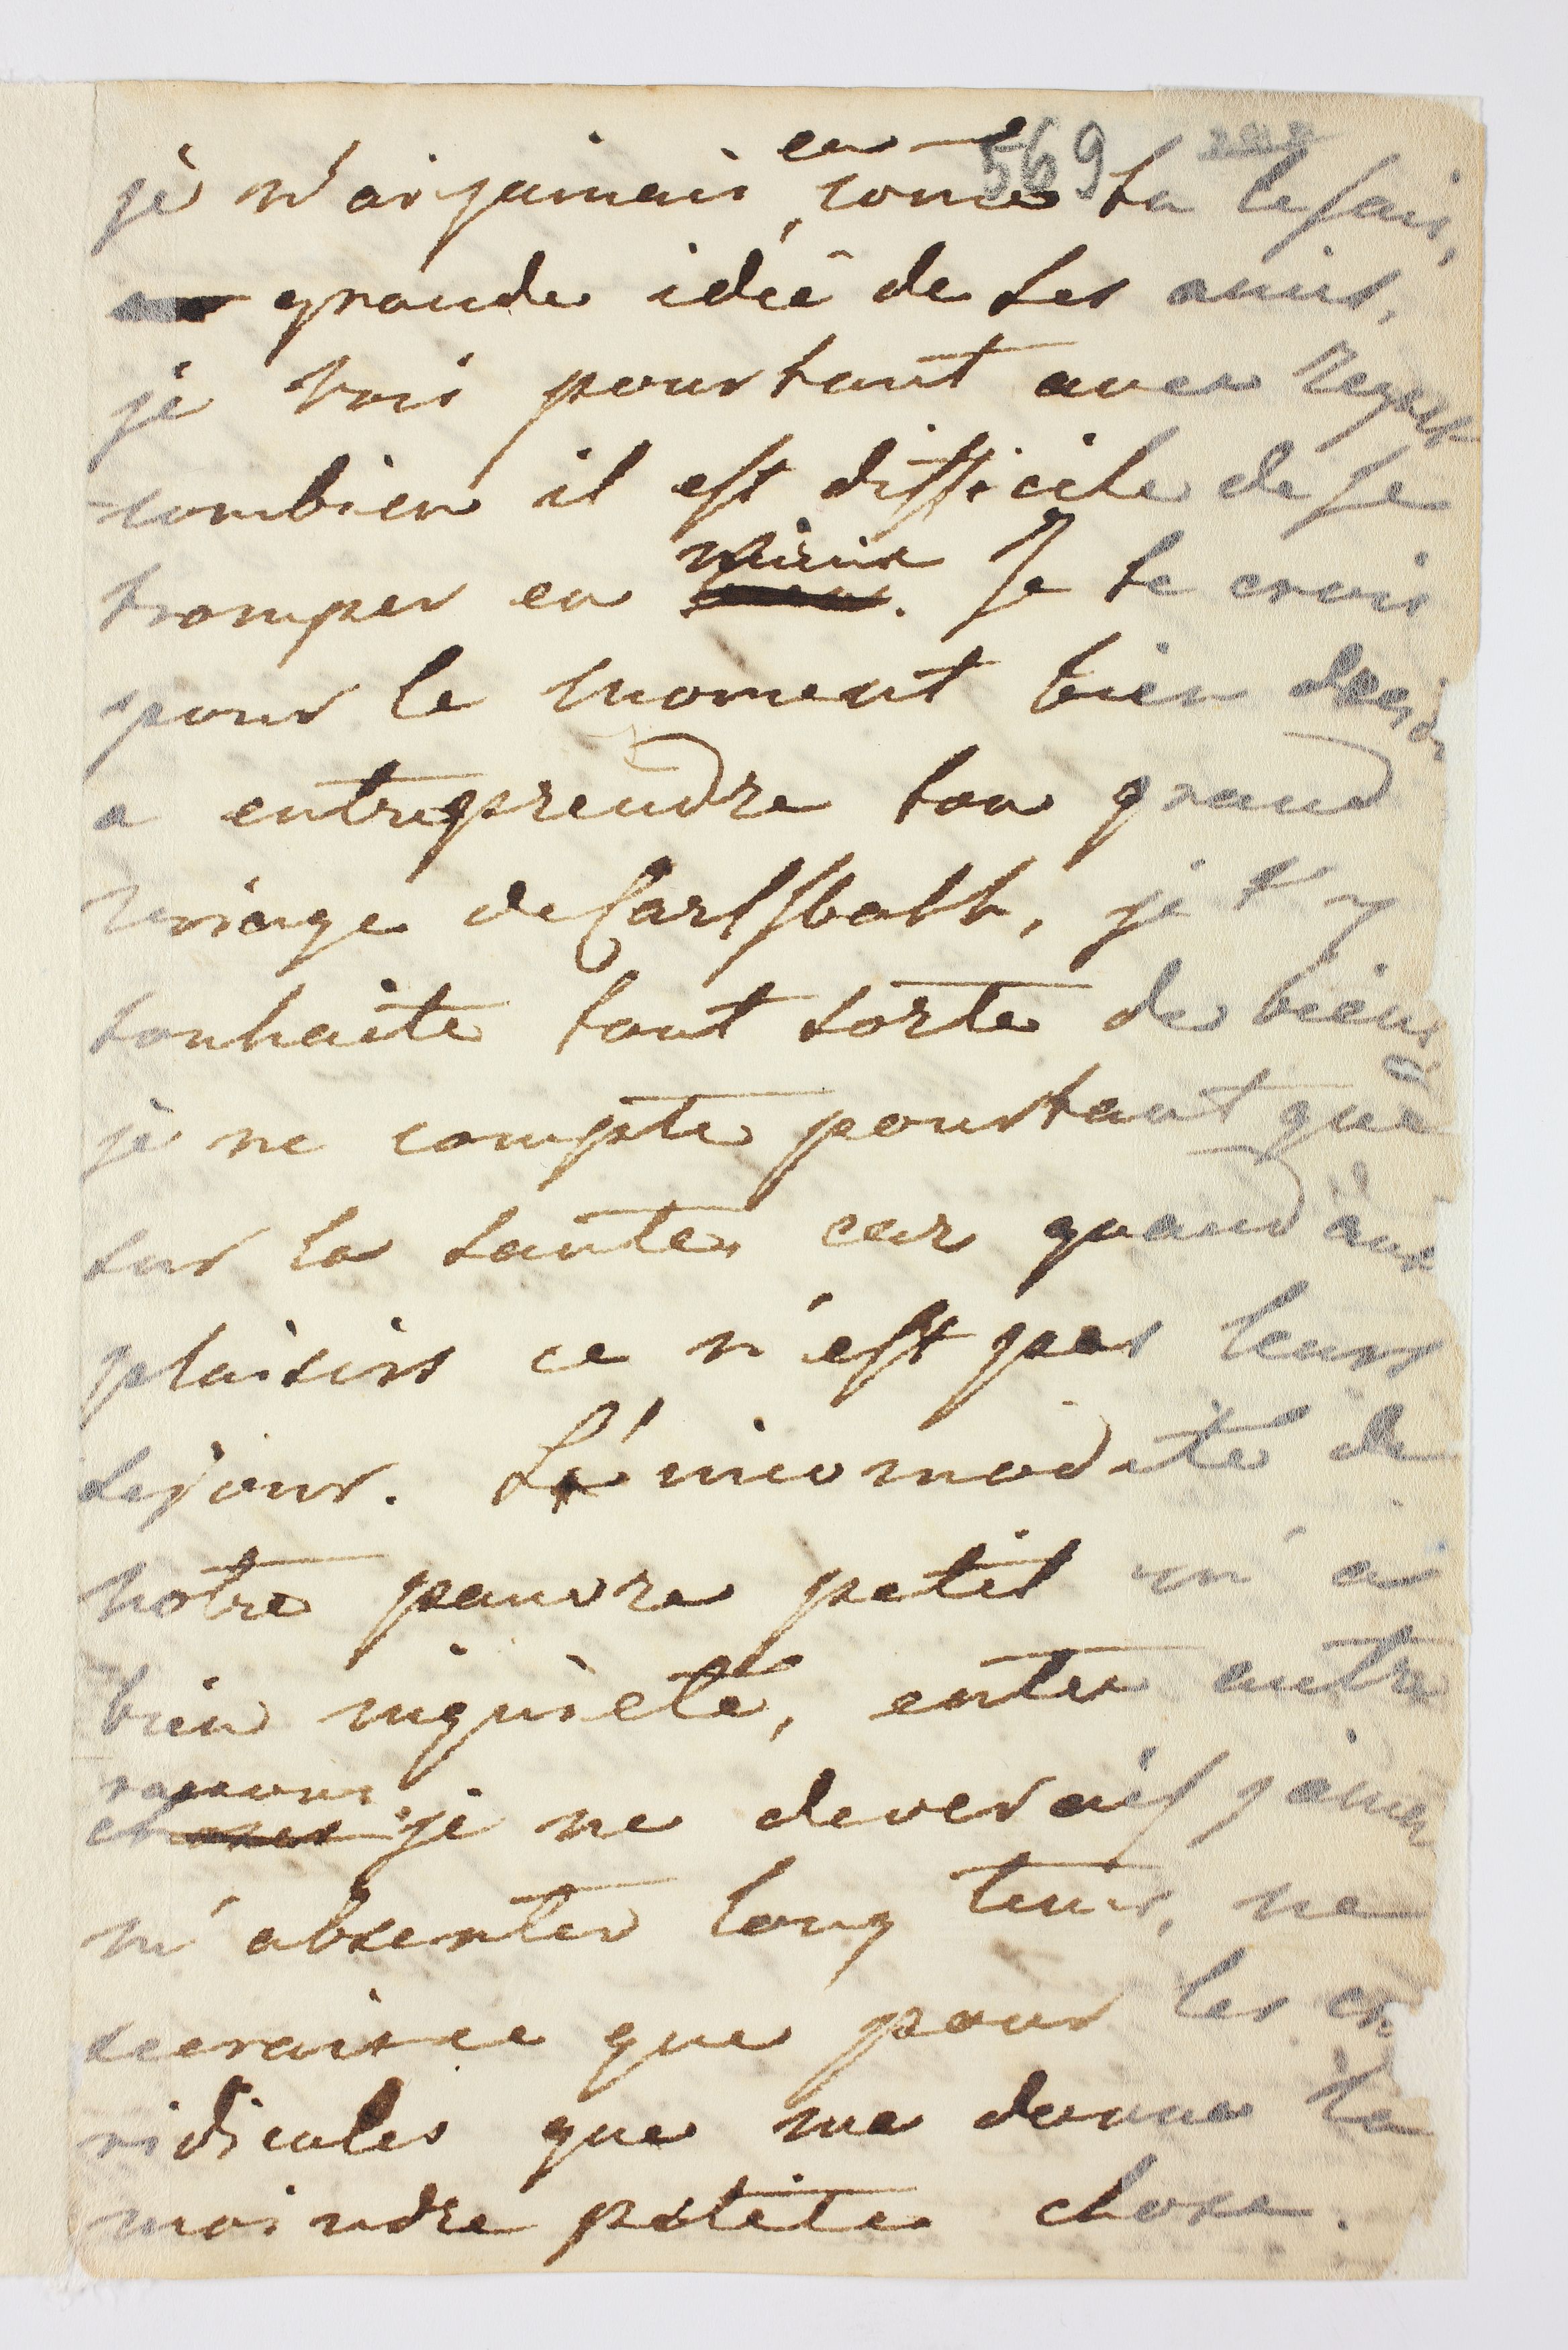 569
je n'ai jamais eu come tu le sais,
grande idée de tes amis,
je vois pourtant avec regret
combien il est difficile de se
tromper en mieux. Je te crois
pour le moment bien decidé
a entreprendre ton grand
voiage de Carlsbath, je t'y
souhaite tout sorte de biens
je ne compte pourtant que
sur la santé, car quand aux
plaisirs ce n'est pas leurs
sejour. L'incomodité de
notre pauvre petit m'a
bien inquieté, entre autre
raisons je ne deverais jamais
m'absenter long tems, ne
seeraisce que pour les
ridicules que me donne la
moindre petite chose.